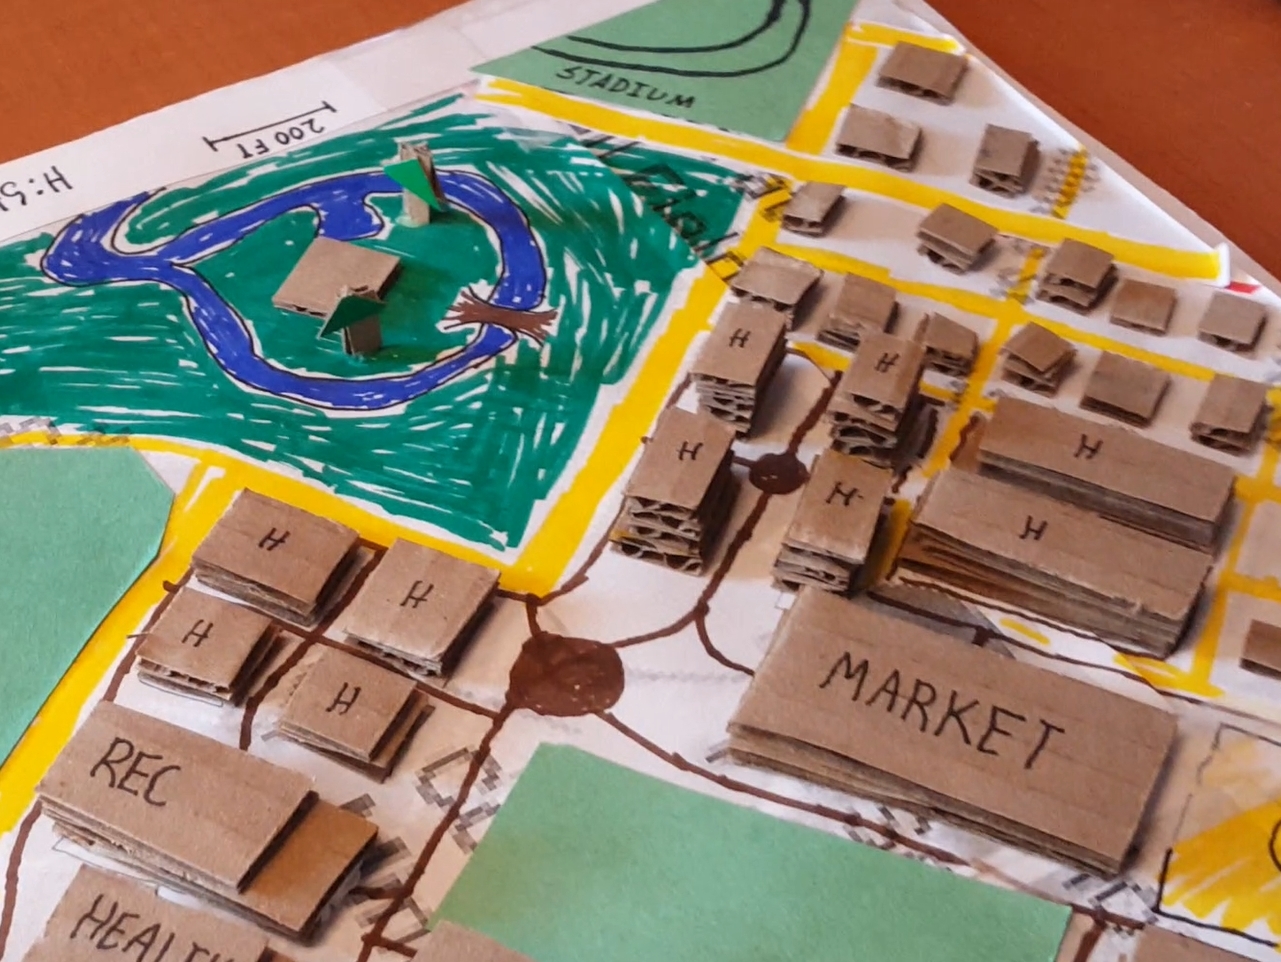 STADIUM
200 FT
H
H
H
H
H
H
H
H
H
H
MARKET
REC